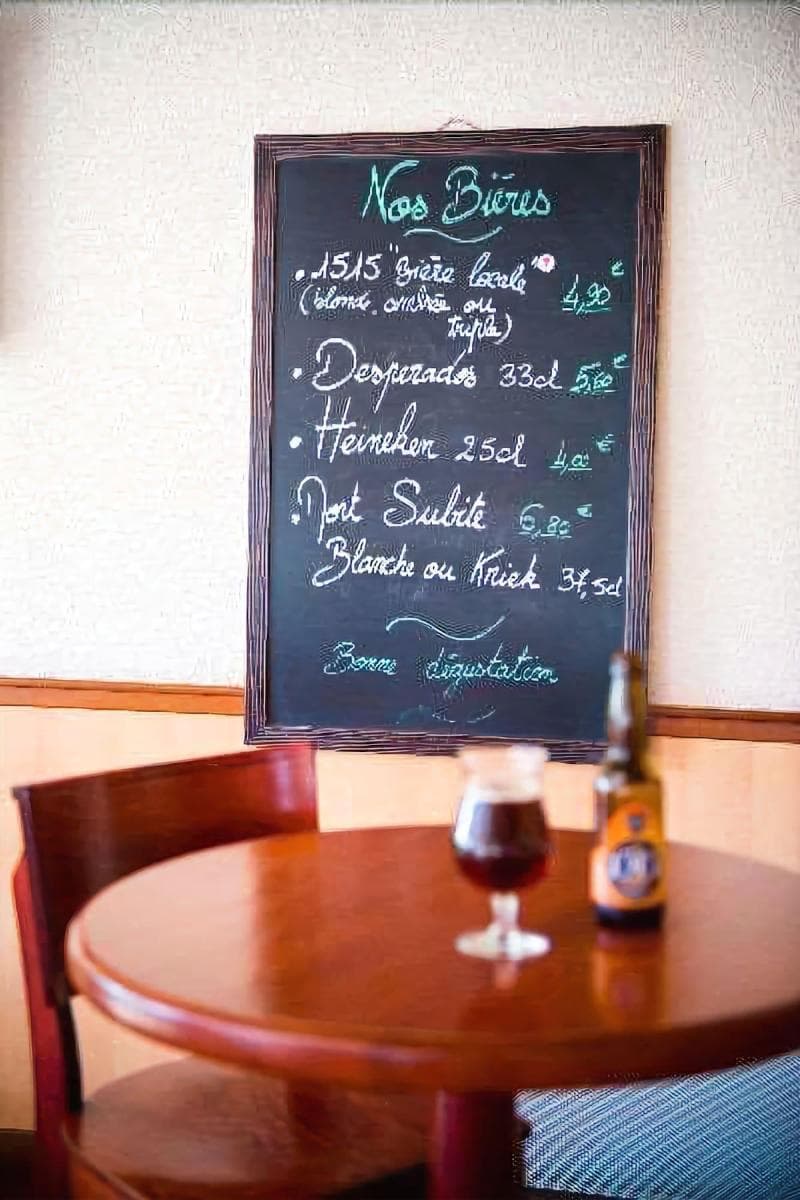 Nos Bières
• 1515 "Bière locale"
(blonde, ambrée ou
triple) 4,90 €
• Desperados 33cl 5,60 €
• Heineken 25cl 4,00 €
• Mort Subite 6,80 €
Blanche ou Kriek 37,5cl
Bonne dégustation